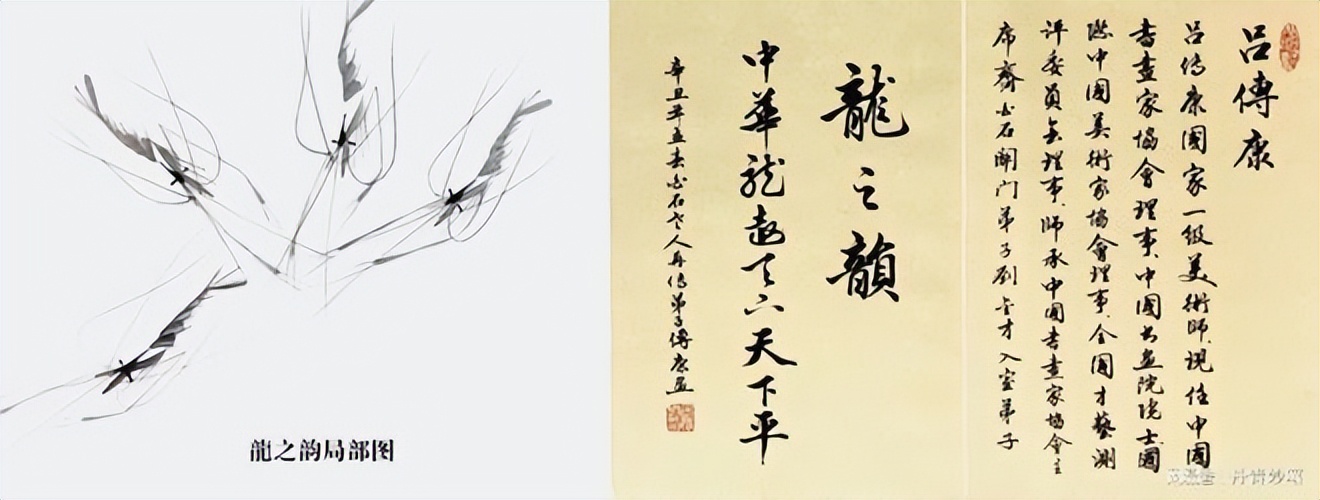 龍之韵局部图
吕傳康
吕傳康國家一级美術師.現任中國
書畫家協會理事.中國书画院院士.國
際中國美術家協會理事.全國才藝測
評委員會理事.師承中國書畫家協會主
席齊白石關门弟子刘金才入室弟子
龍之韻
中華龍 天下平
辛丑年孟春白石老人再传弟子傅康画